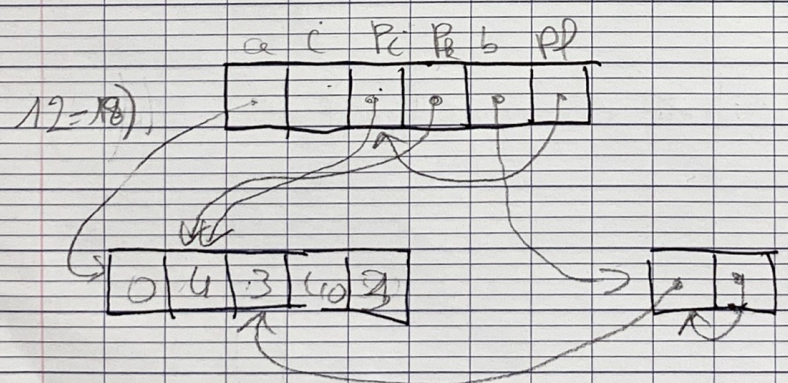 a i Pi Pk b pp
12=18),
0 4 3 40